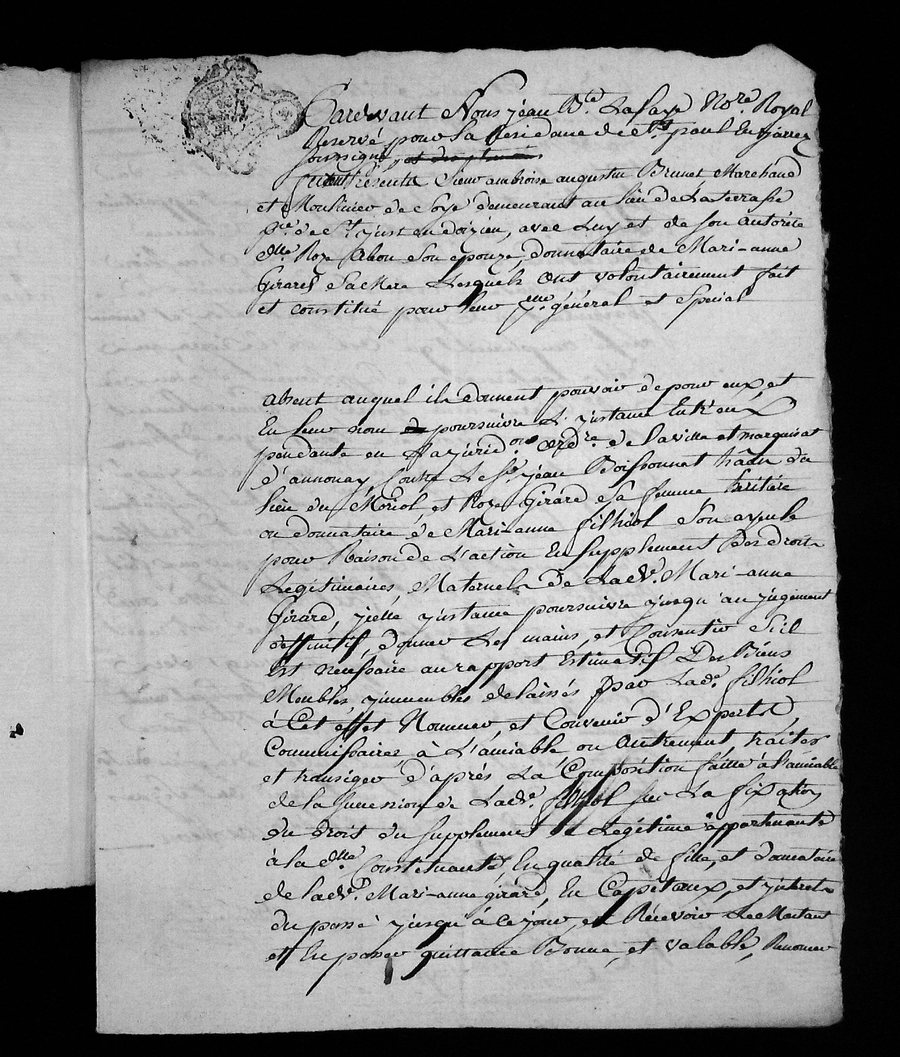 Pardevant Nous jean B.te Lafaye No.re Royal
Reservé pour la Residance de S.t paul En jarrez
soussigné
furent Présents Sieur ambroise augustin Brunet Marchand
et Moulinier de Soye demeurant au lieu de La terrasse
P.sse de S.t just en doizieu, avec Luy et de son Autorité
d.lle Roze Abou Son epouze, donnataire de Mari-anne
Girard Sa Mere Lesquels Ont volontairement fait
et constitué pour leur p.eur général et Special
absent auquel ils donnent pouvoir de pour eux, et
En leur nom poursuivre L'ynstance Entr'eux
pendante en La jurid.on ord.re de la ville et marquisat
d'annonay, Contre Le S.r jean Boissonnet du
lieu du Moriol, et Roze Girard sa femme héritière
ou donnataire de Mari-anne filhiol Son ayeule
pour Raison de L'action En Supplement Des droits
Legitimaires, Maternels De Lad.e Mari-anne
Girard, ycelle ynstance poursuivre jusqu'au jugement
deffinitif, donner Les mains, et Consentir S'il
Est necessaire au rapport Estimatif Des Biens
Meubles, ymmeubles delaissés par Lad.e filhiol
à Cet effet Nommer, et Convenir d'Experts,
Commissaires à L'amiable ou Autrement, traiter
et transiger d'après La Composition faitte à l'amiable
de la Succession de Lad.e filhiol sur La fixation
du droit du Supplement de Legitime appartenante
à la d.lle Constituante, En qualité de fille, et donnataire
de lad.e Mari-anne girard, En Capitaux, et yntrets
du passé jusqu'à ce jour, en Recevoir Le Montant
et En passer quittance Bonne, et valable, Renoncer